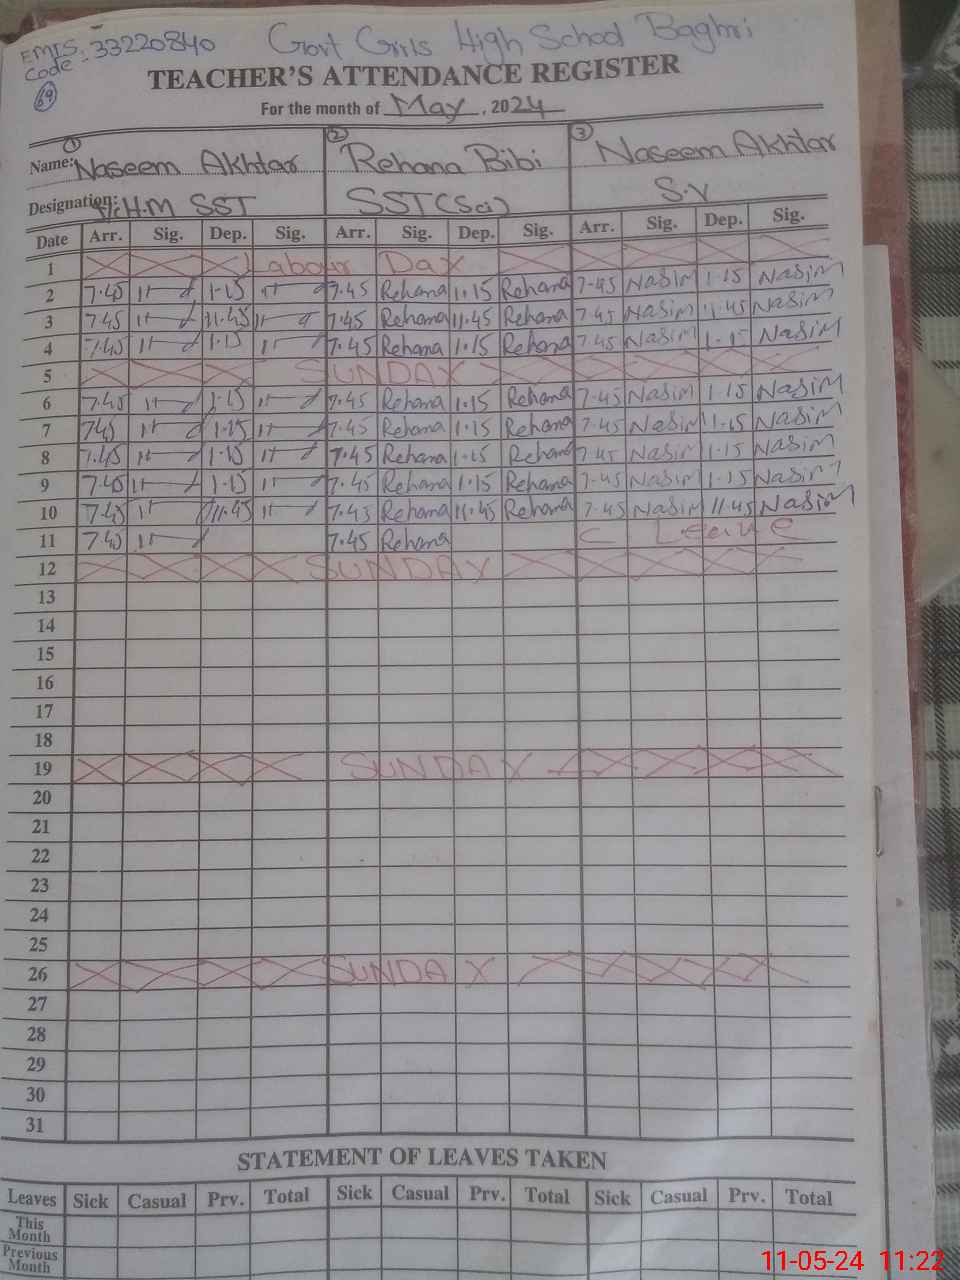 EMIS Code:- 33220840 Govt Girls High School Baghri
69
TEACHER'S ATTENDANCE REGISTER
For the month of May, 2024
1 2 3
Name: Naseem Akhtar Rehana Bibi Naseem Akhtar
Designation: I/c H.M SST SST (Sci) S.V
Date Arr. Sig. Dep. Sig. Arr. Sig. Dep. Sig. Arr. Sig. Dep. Sig.
1 Labour Day
2 7.45 1.15 7.45 Rehana 1.15 Rehana 7.45 NASIM 1.15 NASIM
3 7.45 11.45 7.45 Rehana 11.45 Rehana 7.45 NASIM 11.45 NASIM
4 7.45 1.15 7.45 Rehana 1.15 Rehana 7.45 NASIM 1.15 NASIM
5 SUNDAY
6 7.45 1.15 7.45 Rehana 1.15 Rehana 7.45 NASIM 1.15 NASIM
7 7.45 1.15 7.45 Rehana 1.15 Rehana 7.45 NASIM 1.15 NASIM
8 7.45 1.15 7.45 Rehana 1.15 Rehana 7.45 NASIM 1.15 NASIM
9 7.45 1.15 7.45 Rehana 1.15 Rehana 7.45 NASIM 1.15 NASIM
10 7.45 11.45 7.45 Rehana 11.45 Rehana 7.45 NASIM 11.45 NASIM
11 7.45 7.45 Rehana C Leave
12 SUNDAY
13
14
15
16
17
18
19 SUNDAY
20
21
22
23
24
25
26 SUNDAY
27
28
29
30
31
STATEMENT OF LEAVES TAKEN
Leaves Sick Casual Prv. Total Sick Casual Prv. Total Sick Casual Prv. Total
This Month
Previous Month
11-05-24 11:22